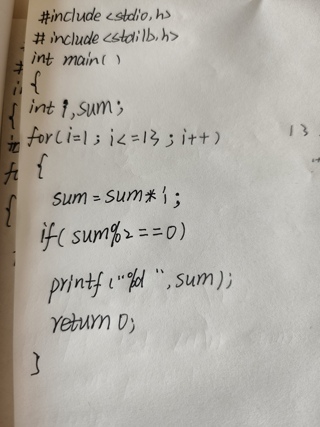 #include <stdio.h>
# include <stdilb.h>
int main()
{
int i,sum;
for(i=1; i<=13; i++)
13
{
sum=sum*i;
if(sum%2==0)
printf("%d",sum);
return 0;
}